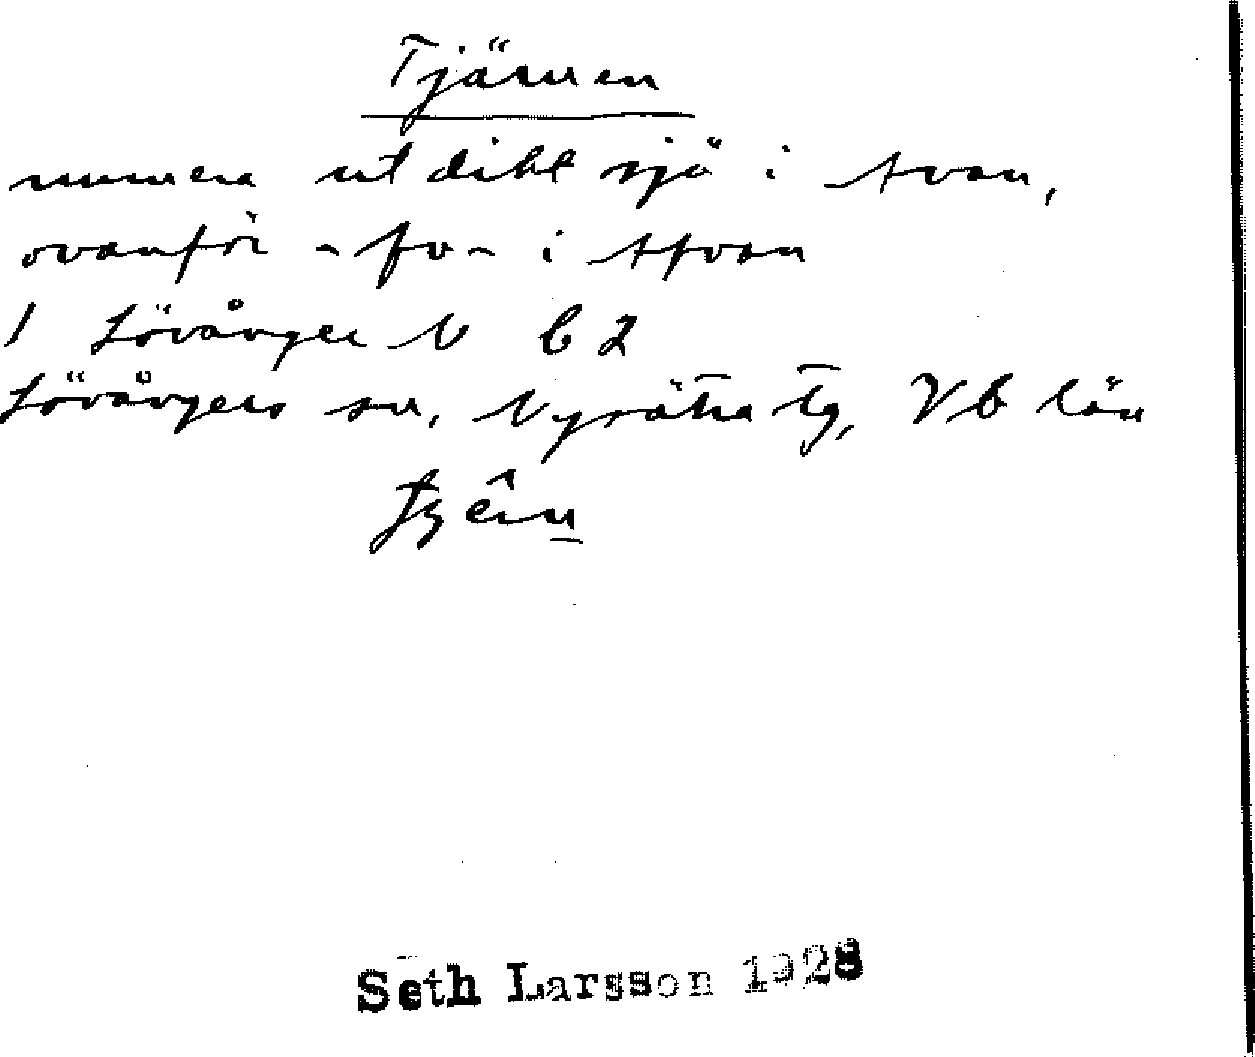 Tjärnen
numera utdikt sjö i Avan,
ovanför -fv- i Afvan
1 Lövånger N b 2
Lövångers sn, Nysätra tg, Vb län
Seth Larsson 1928